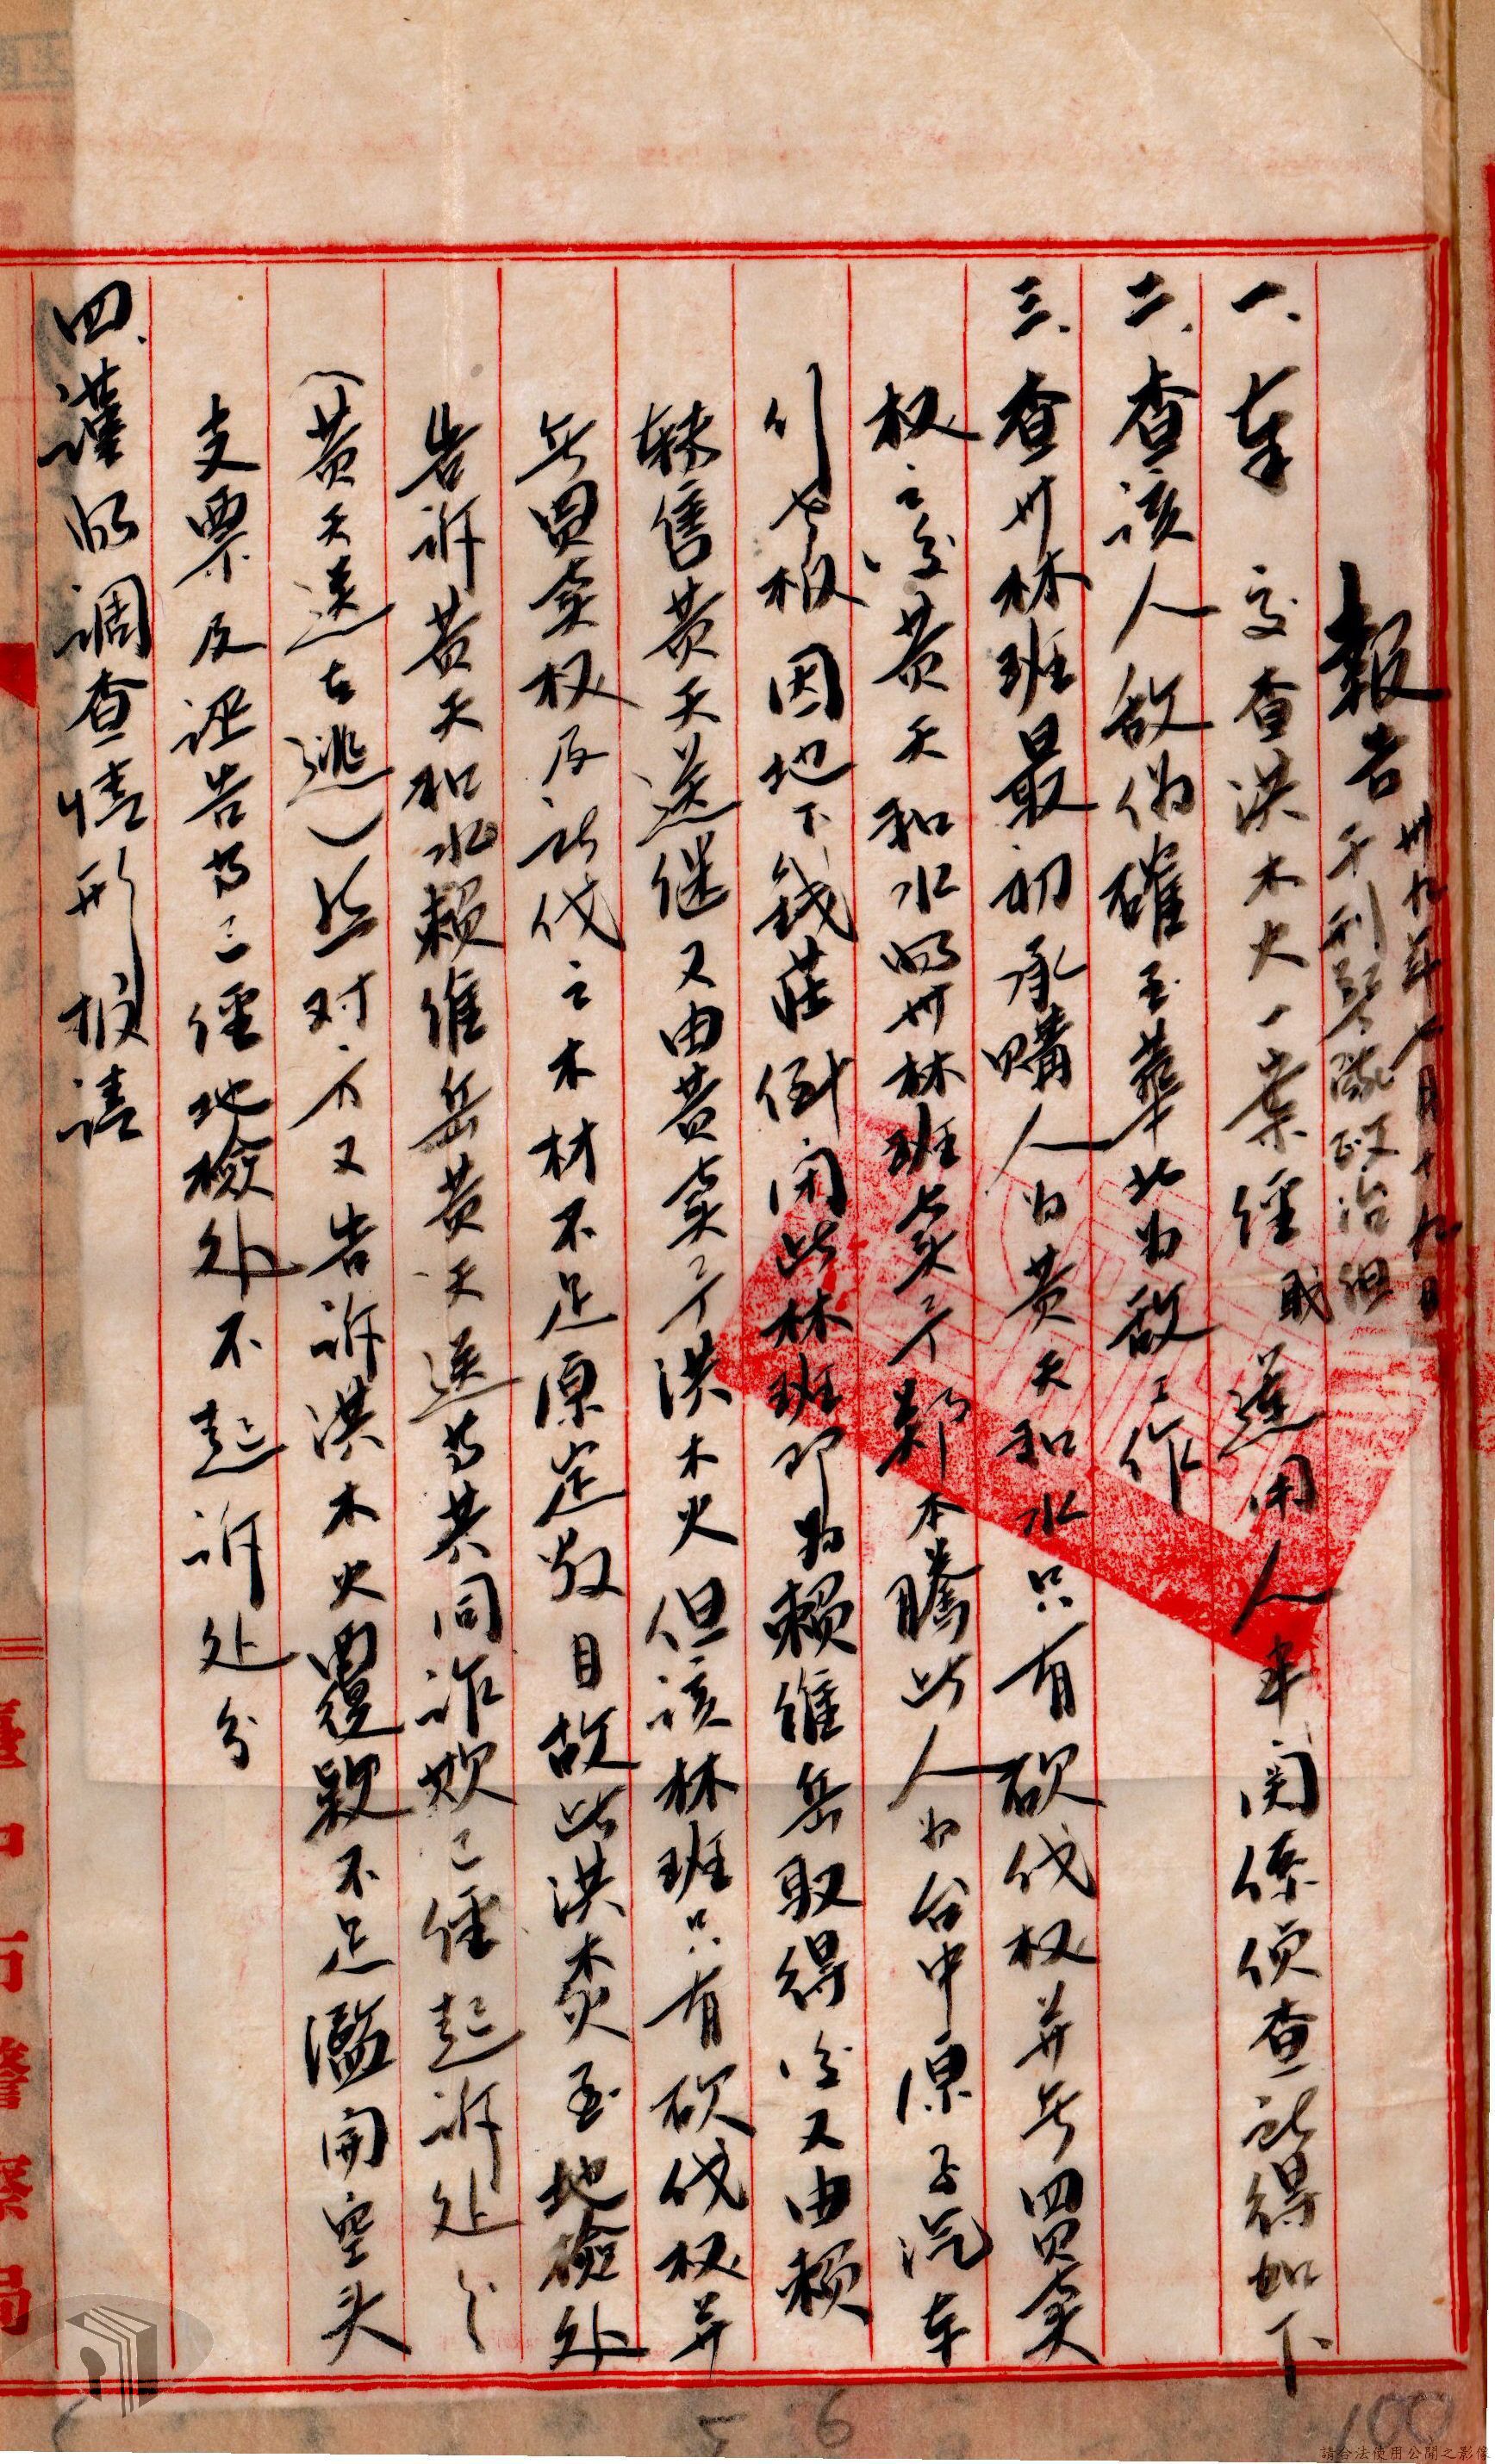 報告 卅九年七月十九日 于刑警隊政治組
一、奉 交查洪木火一案經職運用人事關係偵查所得如下
二、查該人敵偽確至華北為敵工作
三、查卅林班最初承購人為黃天和水只有砍伐权并無買卖
权之後黃天和水將卅林班卖于鄭本騰此人为台中原子汽车
行老板因地下錢莊倒闭此林班即為賴維岳取得後又由賴
轉售黃天送继又由黄卖于洪木火但該林班只有砍伐权并
無買卖权及所伐之木材不足原定数目故此洪木火至地檢处
告訴黃天和水賴維岳黃天送等共同诈欺已經起訴处分
(黃天送在逃)然对方又告訴洪木火曲覆款不足濫開空头
支票及诬告等已經地檢处不起訴处分
四、謹將調查情形报請
臺中市警察局
請合法使用公開之影像